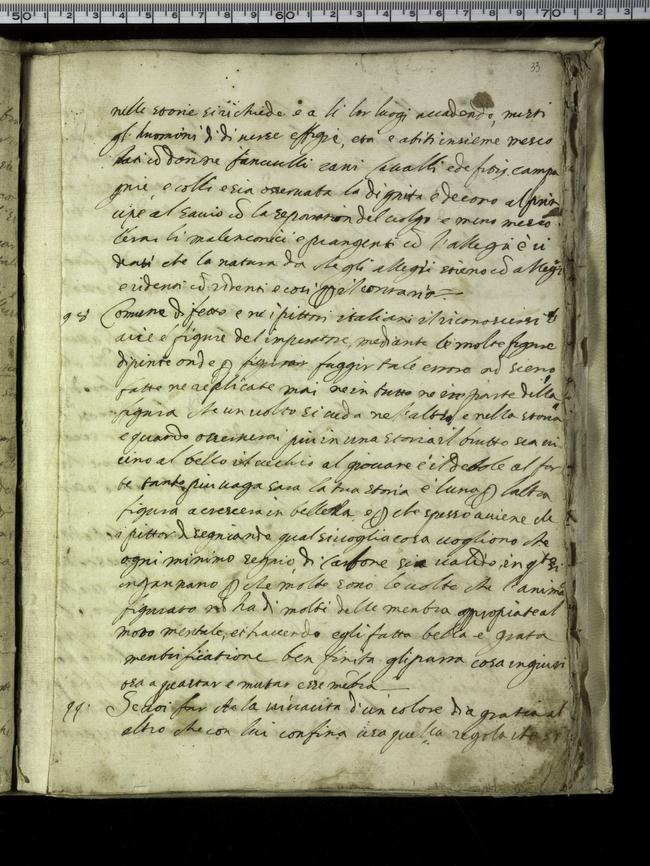 33
nelle storie si richiede e a li lor luogi accadendo, misti
gli huomini di diverse effigie, eta e abiti insieme mesco
lati cō donne fanciulli cani cavalli edefitij campa
gnie e colli e sia osservata la dignità e decoro al prin
cipe al savio cō la separation del volgo e meno mesco
lerai li malenconici e piangenti cō l'allegri e ri
denti che la natura da che gli allegri stieno cō allegri
e ridenti cō ridenti e cosi p il contrario
98 Comune difetto e ne i pittori italiani il riconoscersi l'
aria e figure del imperatore, mediante le molte figure
dipinte onde p fuggir tale errore nō sieno
fatte ne replicate mai ne in tutto ne in parte delle
figura che un volto si veda ne l'altro e nella storia
e quando osserverai piu in una storia il brutto sia vi
cino al bello il vechio al giovane e il debole al for
te tanto piu vaga sara la tua storia e l'una p l'altra
figura accrescera in bellezza e p che spesso aviene che
i pittor disegniando qual si voglia cosa vogliono che
ogni minimo segnio di carbone sia valido, in qto si
ingannano p che molte sono le volte che l'animal
figurato nō ha di molti delle membra apropiate al
moto mentale, et havendo egli fatta bella e grata
membrificatione ben finita gli parra cosa ingiuri
osa a guastar e mutar esse mēbra
99 Se vuoi far che la vicinita d'un colore dia gratia al
altro che con lui confina usa quella regola che si